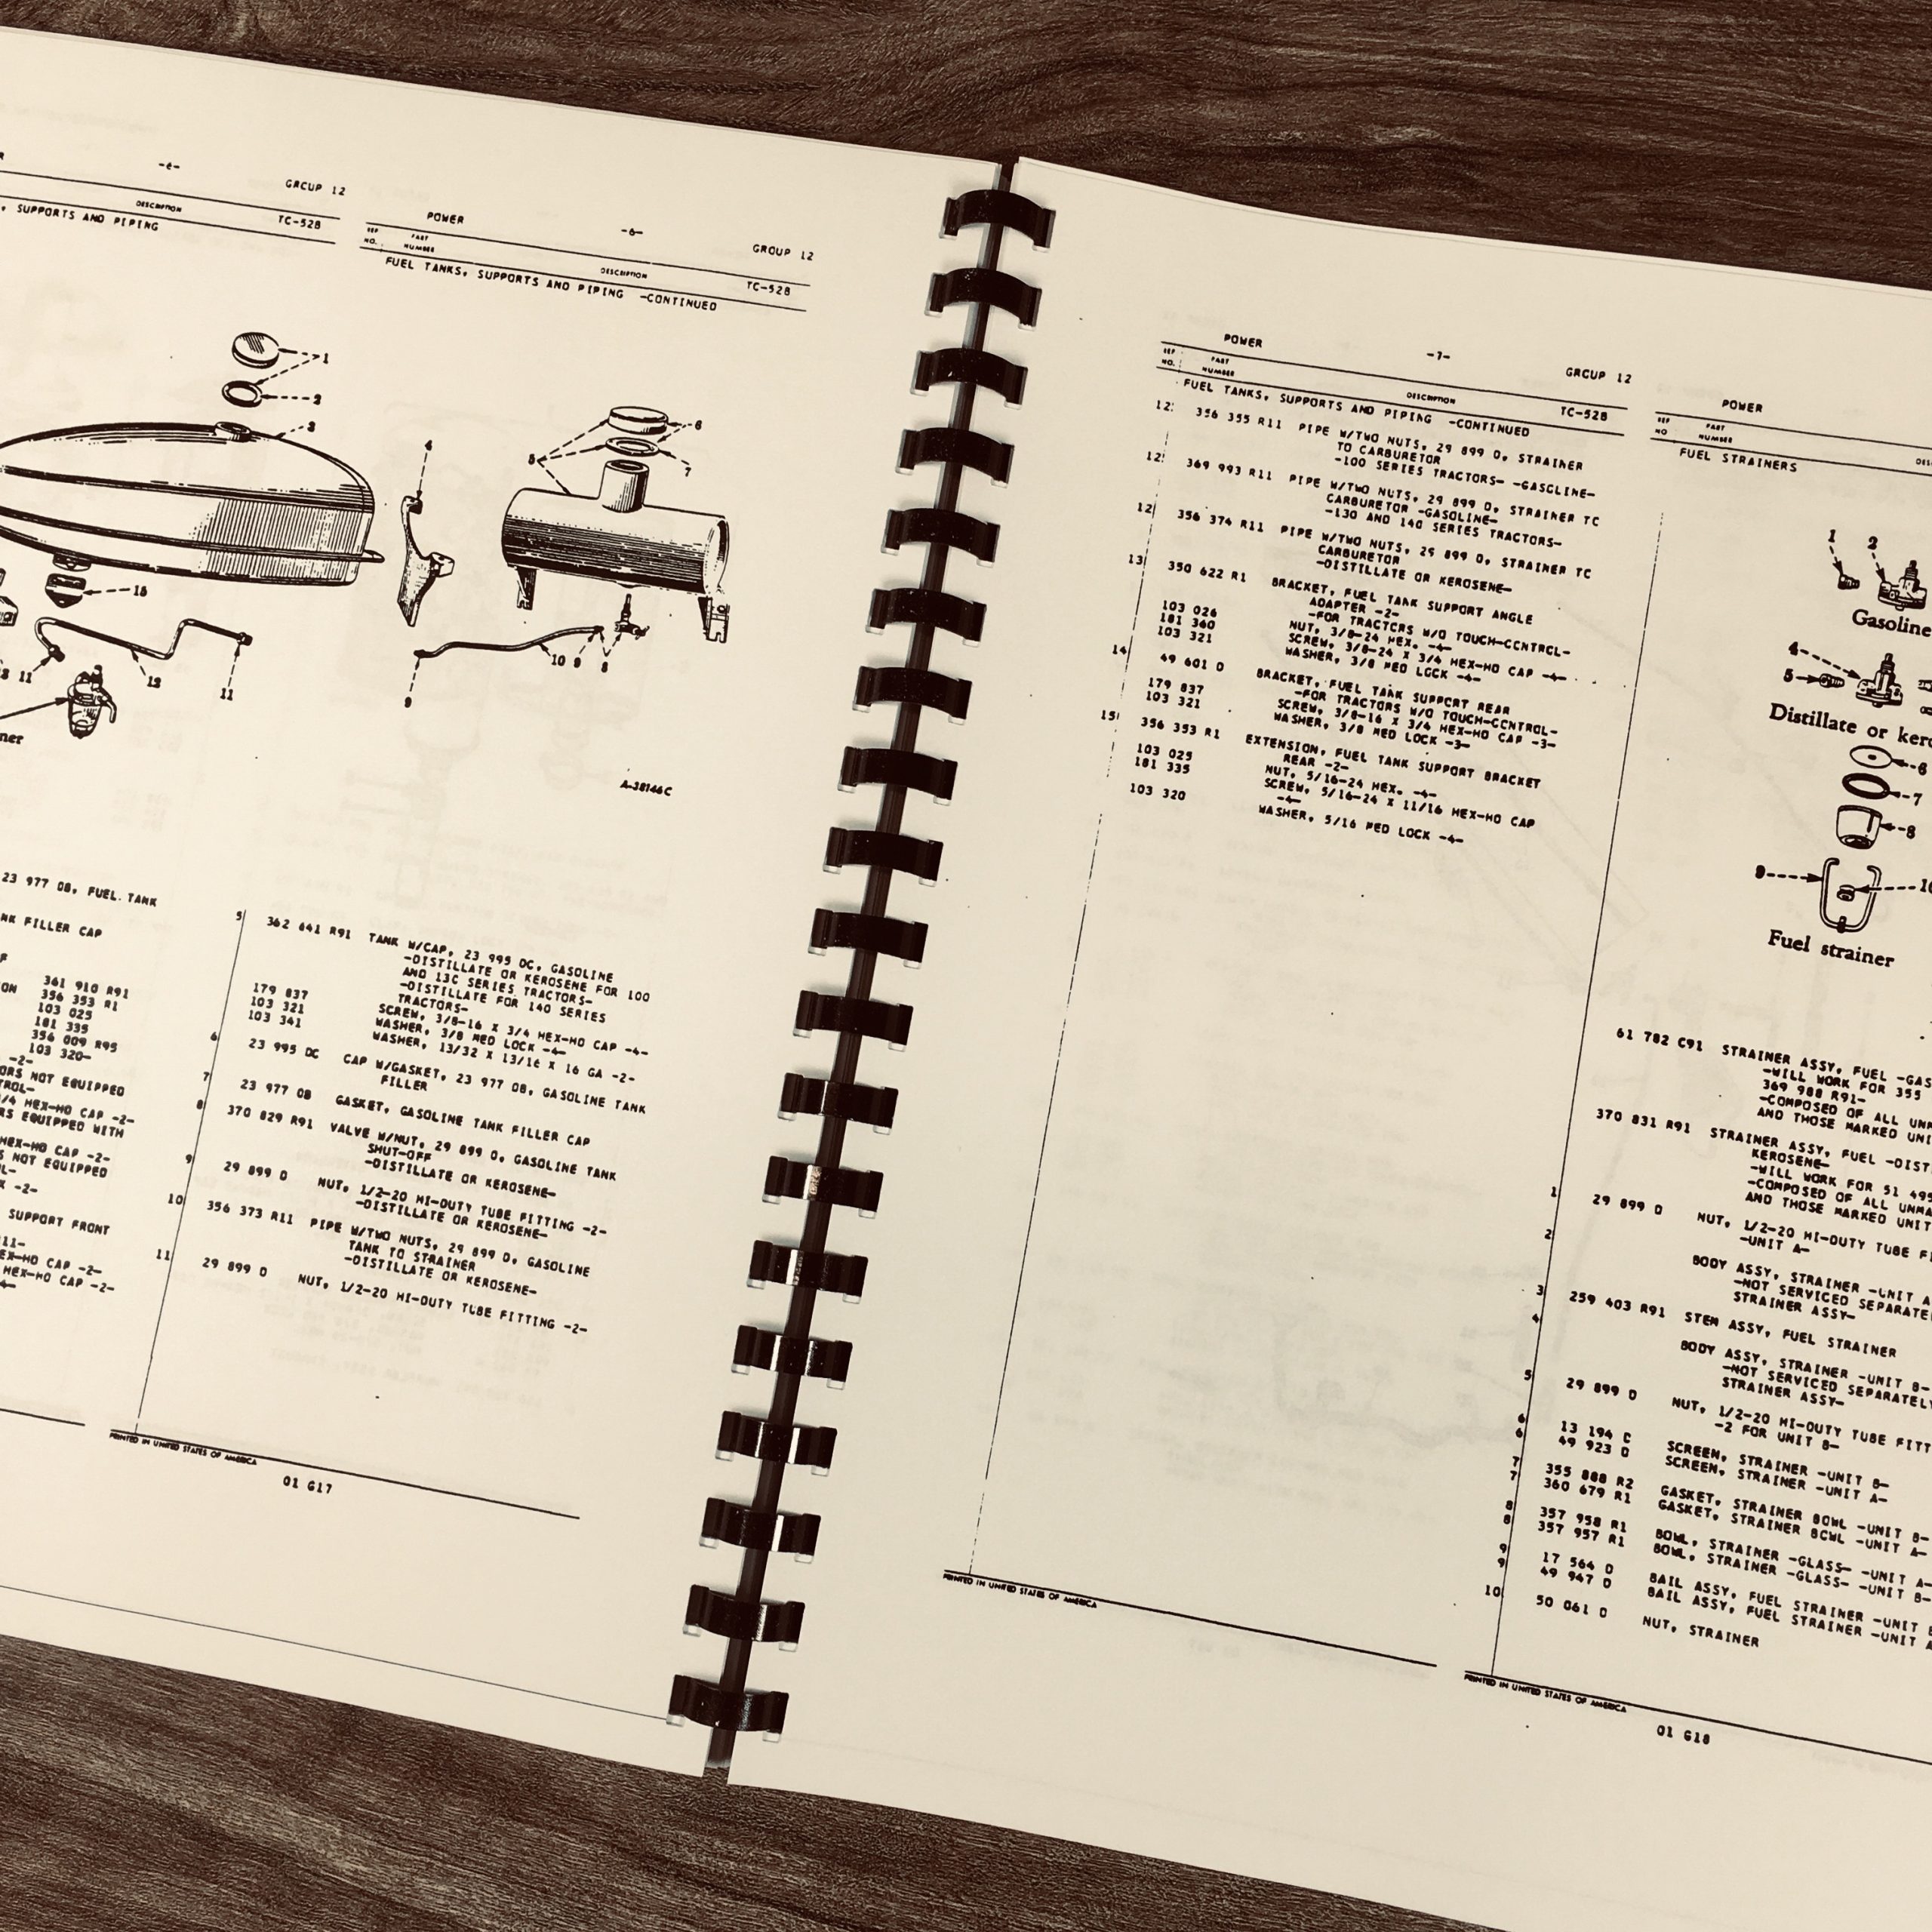 -6-
GROUP 12
DESCRIPTION
TC-528
, SUPPORTS AND PIPING
1
2
3
4
15
11
12
11
ner
23 977 DB, FUEL TANK
NK FILLER CAP
361 910 R91
356 353 R1
103 025
181 335
356 009 R95
103 320-
-2-
ORS NOT EQUIPPED
TROL-
/4 HEX-HD CAP -2-
RS EQUIPPED WITH
HEX-HD CAP -2-
S NOT EQUIPPED
L-
-2-
SUPPORT FRONT
11-
EX-HD CAP -2-
HEX-HD CAP -2-
POWER
-6-
GROUP 12
REF NO.
PART NUMBER
DESCRIPTION
TC-528
FUEL TANKS, SUPPORTS AND PIPING -CONTINUED
5
6
7
10
9
8
9
A-38146C
5 362 641 R91 TANK W/CAP, 23 995 DC, GASOLINE
-DISTILLATE OR KEROSENE FOR 100
AND 130 SERIES TRACTORS-
-DISTILLATE FOR 140 SERIES
TRACTORS-
179 837 SCREW, 3/8-16 X 3/4 HEX-HD CAP -4-
103 321 WASHER, 3/8 MED LOCK -4-
103 341 WASHER, 13/32 X 13/16 X 16 GA -2-
6 23 995 DC CAP W/GASKET, 23 977 DB, GASOLINE TANK
FILLER
7 23 977 DB GASKET, GASOLINE TANK FILLER CAP
8 370 829 R91 VALVE W/NUT, 29 899 D, GASOLINE TANK
SHUT-OFF
-DISTILLATE OR KEROSENE-
9 29 899 D NUT, 1/2-20 HI-DUTY TUBE FITTING -2-
-DISTILLATE OR KEROSENE-
10 356 373 R11 PIPE W/TWO NUTS, 29 899 D, GASOLINE
TANK TO STRAINER
-DISTILLATE OR KEROSENE-
11 29 899 D NUT, 1/2-20 HI-DUTY TUBE FITTING -2-
PRINTED IN UNITED STATES OF AMERICA
01 G17
POWER
-7-
GROUP 12
REF NO.
PART NUMBER
DESCRIPTION
TC-528
FUEL TANKS, SUPPORTS AND PIPING -CONTINUED
12 356 355 R11 PIPE W/TWO NUTS, 29 899 D, STRAINER
TO CARBURETOR
-100 SERIES TRACTORS- -GASOLINE-
12 369 993 R11 PIPE W/TWO NUTS, 29 899 D, STRAINER TO
CARBURETOR -GASOLINE-
-130 AND 140 SERIES TRACTORS-
12 356 374 R11 PIPE W/TWO NUTS, 29 899 D, STRAINER TO
CARBURETOR
-DISTILLATE OR KEROSENE-
13 350 622 R1 BRACKET, FUEL TANK SUPPORT ANGLE
ADAPTER -2-
-FOR TRACTORS W/O TOUCH-CONTROL-
103 026 NUT, 3/8-24 HEX. -4-
181 360 SCREW, 3/8-24 X 3/4 HEX-HD CAP -4-
103 321 WASHER, 3/8 MED LOCK -4-
14 49 601 D BRACKET, FUEL TANK SUPPORT REAR
-FOR TRACTORS W/O TOUCH-CONTROL-
179 837 SCREW, 3/8-16 X 3/4 HEX-HD CAP -3-
103 321 WASHER, 3/8 MED LOCK -3-
15 356 353 R1 EXTENSION, FUEL TANK SUPPORT BRACKET
REAR -2-
103 025 NUT, 5/16-24 HEX. -4-
181 335 SCREW, 5/16-24 X 11/16 HEX-HD CAP
-4-
103 320 WASHER, 5/16 MED LOCK -4-
PRINTED IN UNITED STATES OF AMERICA
POWER
REF NO
PART NUMBER
DES
FUEL STRAINERS
1
2
Gasoline
4
5
Distillate or kero
6
7
8
9
10
Fuel strainer
61 782 C91 STRAINER ASSY, FUEL -GAS
-WILL WORK FOR 355
369 988 R91-
-COMPOSED OF ALL UNM
AND THOSE MARKED UNI
370 831 R91 STRAINER ASSY, FUEL -DIST
KEROSENE-
-WILL WORK FOR 51 495
-COMPOSED OF ALL UNMA
AND THOSE MARKED UNIT
1 29 899 D NUT, 1/2-20 HI-DUTY TUBE FI
-UNIT A-
2 BODY ASSY, STRAINER -UNIT A
-NOT SERVICED SEPARATE
STRAINER ASSY-
3 259 403 R91 STEM ASSY, FUEL STRAINER
4 BODY ASSY, STRAINER -UNIT B-
-NOT SERVICED SEPARATELY
STRAINER ASSY-
5 29 899 D NUT, 1/2-20 HI-DUTY TUBE FITT
-2 FOR UNIT B-
6 13 194 C SCREEN, STRAINER -UNIT B-
6 49 923 D SCREEN, STRAINER -UNIT A-
7 355 888 R2 GASKET, STRAINER BOWL -UNIT B-
7 360 679 R1 GASKET, STRAINER BOWL -UNIT A-
8 357 958 R1 BOWL, STRAINER -GLASS- -UNIT A-
8 357 957 R1 BOWL, STRAINER -GLASS- -UNIT B-
9 17 564 D BAIL ASSY, FUEL STRAINER -UNIT B
9 49 947 D BAIL ASSY, FUEL STRAINER -UNIT A
10 50 061 D NUT, STRAINER
PRINTED IN UNITED STATES OF AMERICA
01 G18